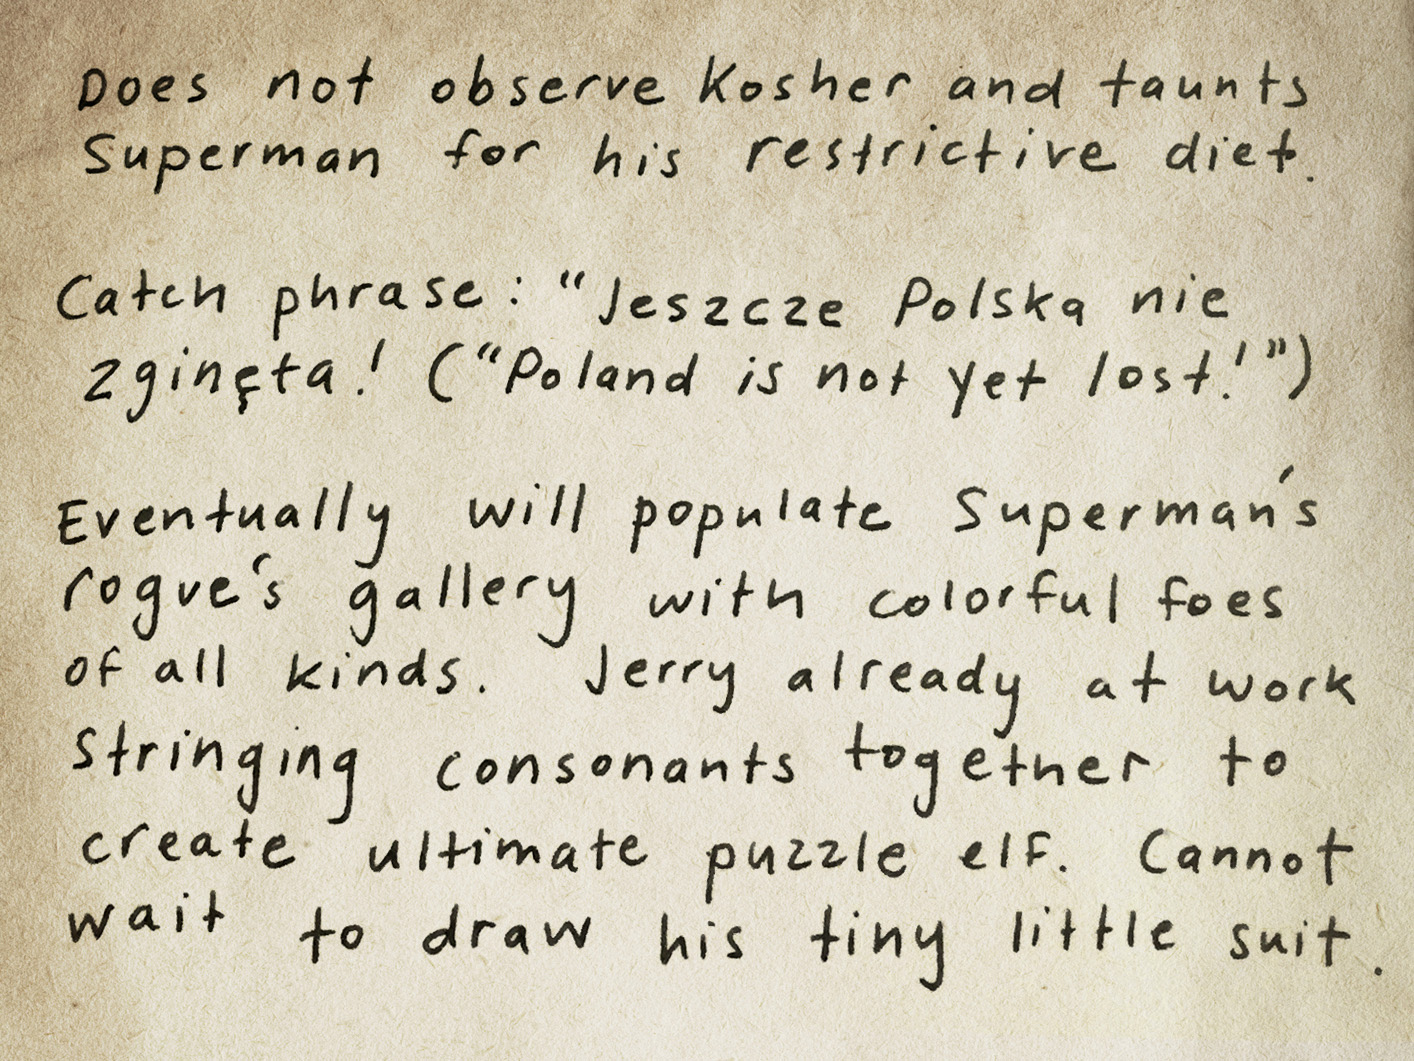 Does not observe Kosher and taunts
Superman for his restrictive diet.
Catch phrase: "Jeszcze Polska nie
zginęta! ("Poland is not yet lost!")
Eventually will populate Superman's
rogue's gallery with colorful foes
of all kinds. Jerry already at work
stringing consonants together to
create ultimate puzzle elf. Cannot
wait to draw his tiny little suit.